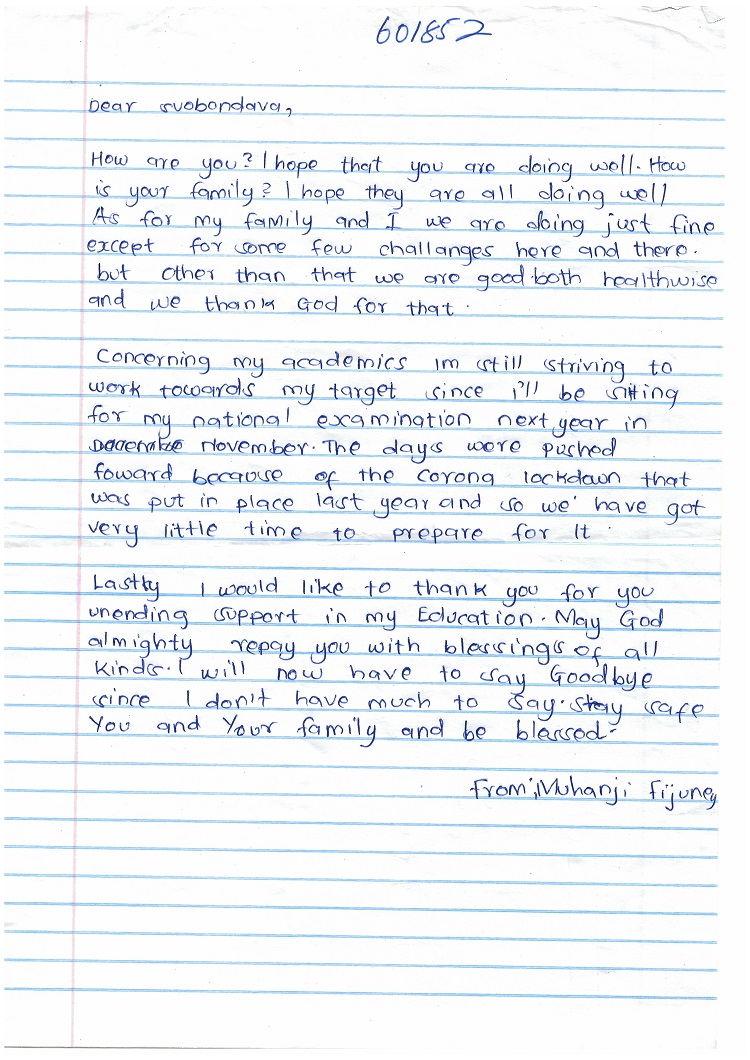 601852
Dear svobondava,
How are you? I hope that you are doing well. How
is your family? I hope they are all doing well
As for my family and I we are doing just fine
except for some few challanges here and there.
but other than that we are good both healthwise
and we thank God for that.
Concerning my academics im still striving to
work towards my target since i'll be sitting
for my national examination next year in
November. The days were pushed
foward because of the corona lockdown that
was put in place last year and so we have got
very little time to prepare for it.
Lastly I would like to thank you for you
unending support in my Education. May God
almighty repay you with blessings of all
kinds. I will now have to say Goodbye
since I don't have much to say. Stay safe
You and Your family and be blessed.
From; Muhanji